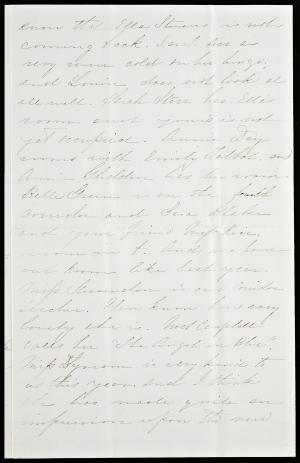 know that Ella Stearns is not
coming back. Such has a
very severe cold on her lungs,
and Louise does not look at
all well. Ella's
room and yours is not
yet occupied. Annie Day
rooms with Emily Talbot, and
Annie Sheldon has her room.
Belle Green is on the fourth
corridor and Blake
and your friend Miss
room on it. And we have
our room like last year.
Miss is our corridor
teacher. You know how very
lovely she is. Campbell
calls her "The Angel in Blue".
Miss Lyman is very kind to
us this year and I think
she has made quite an
impression upon the new